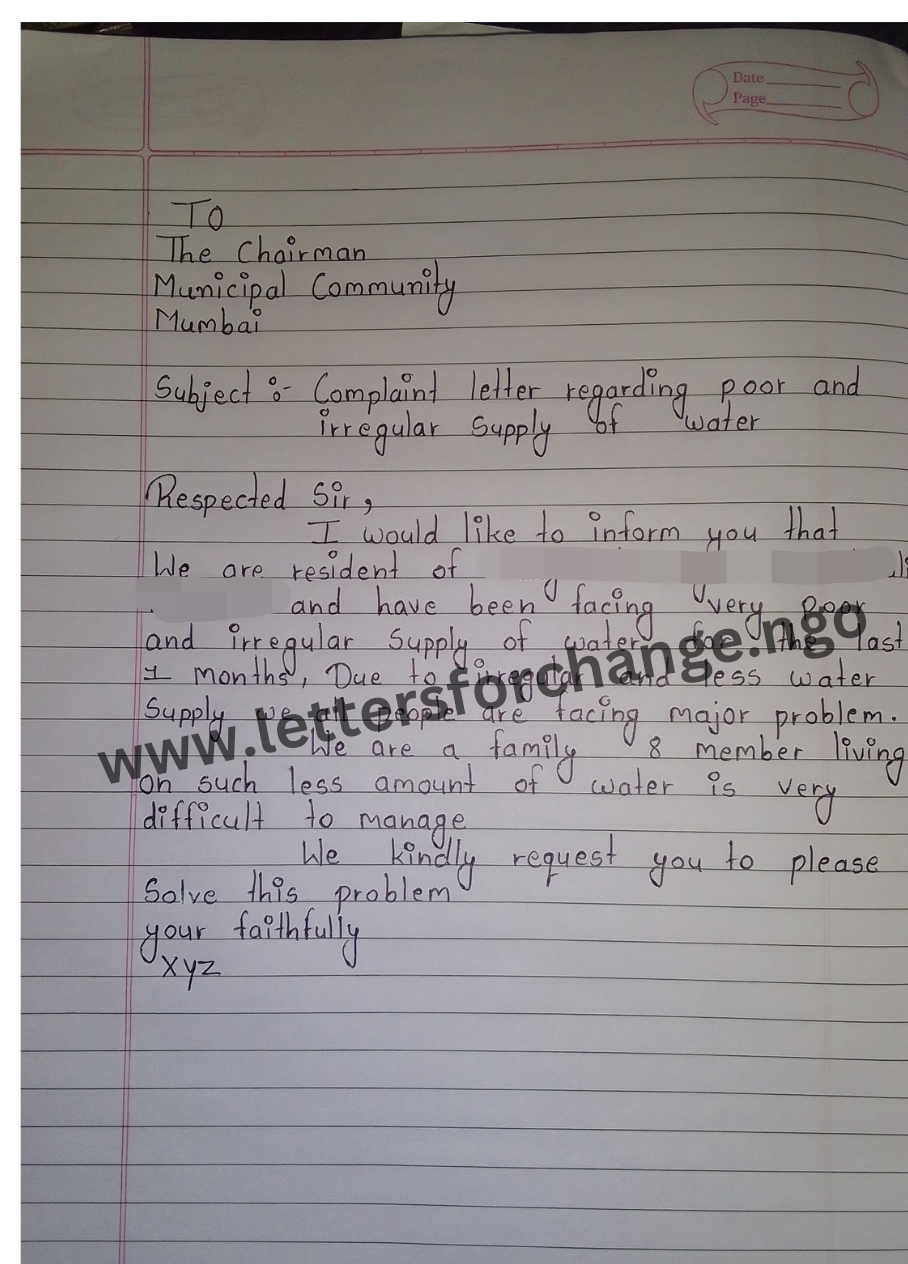 Date
Page
TO
The Chairman
Municipal Community
Mumbai
Subject :- Complaint letter regarding poor and
irregular Supply of water
Respected Sir,
I would like to inform you that
We are resident of
and have been facing very poor
and irregular Supply of water for the last
1 months, Due to irregular and less water
Supply we all people are facing major problem.
We are a family 8 member living
on such less amount of water is very
difficult to manage
We kindly request you to please
Solve this problem
your faithfully
XYZ
www.lettersforchange.ngo